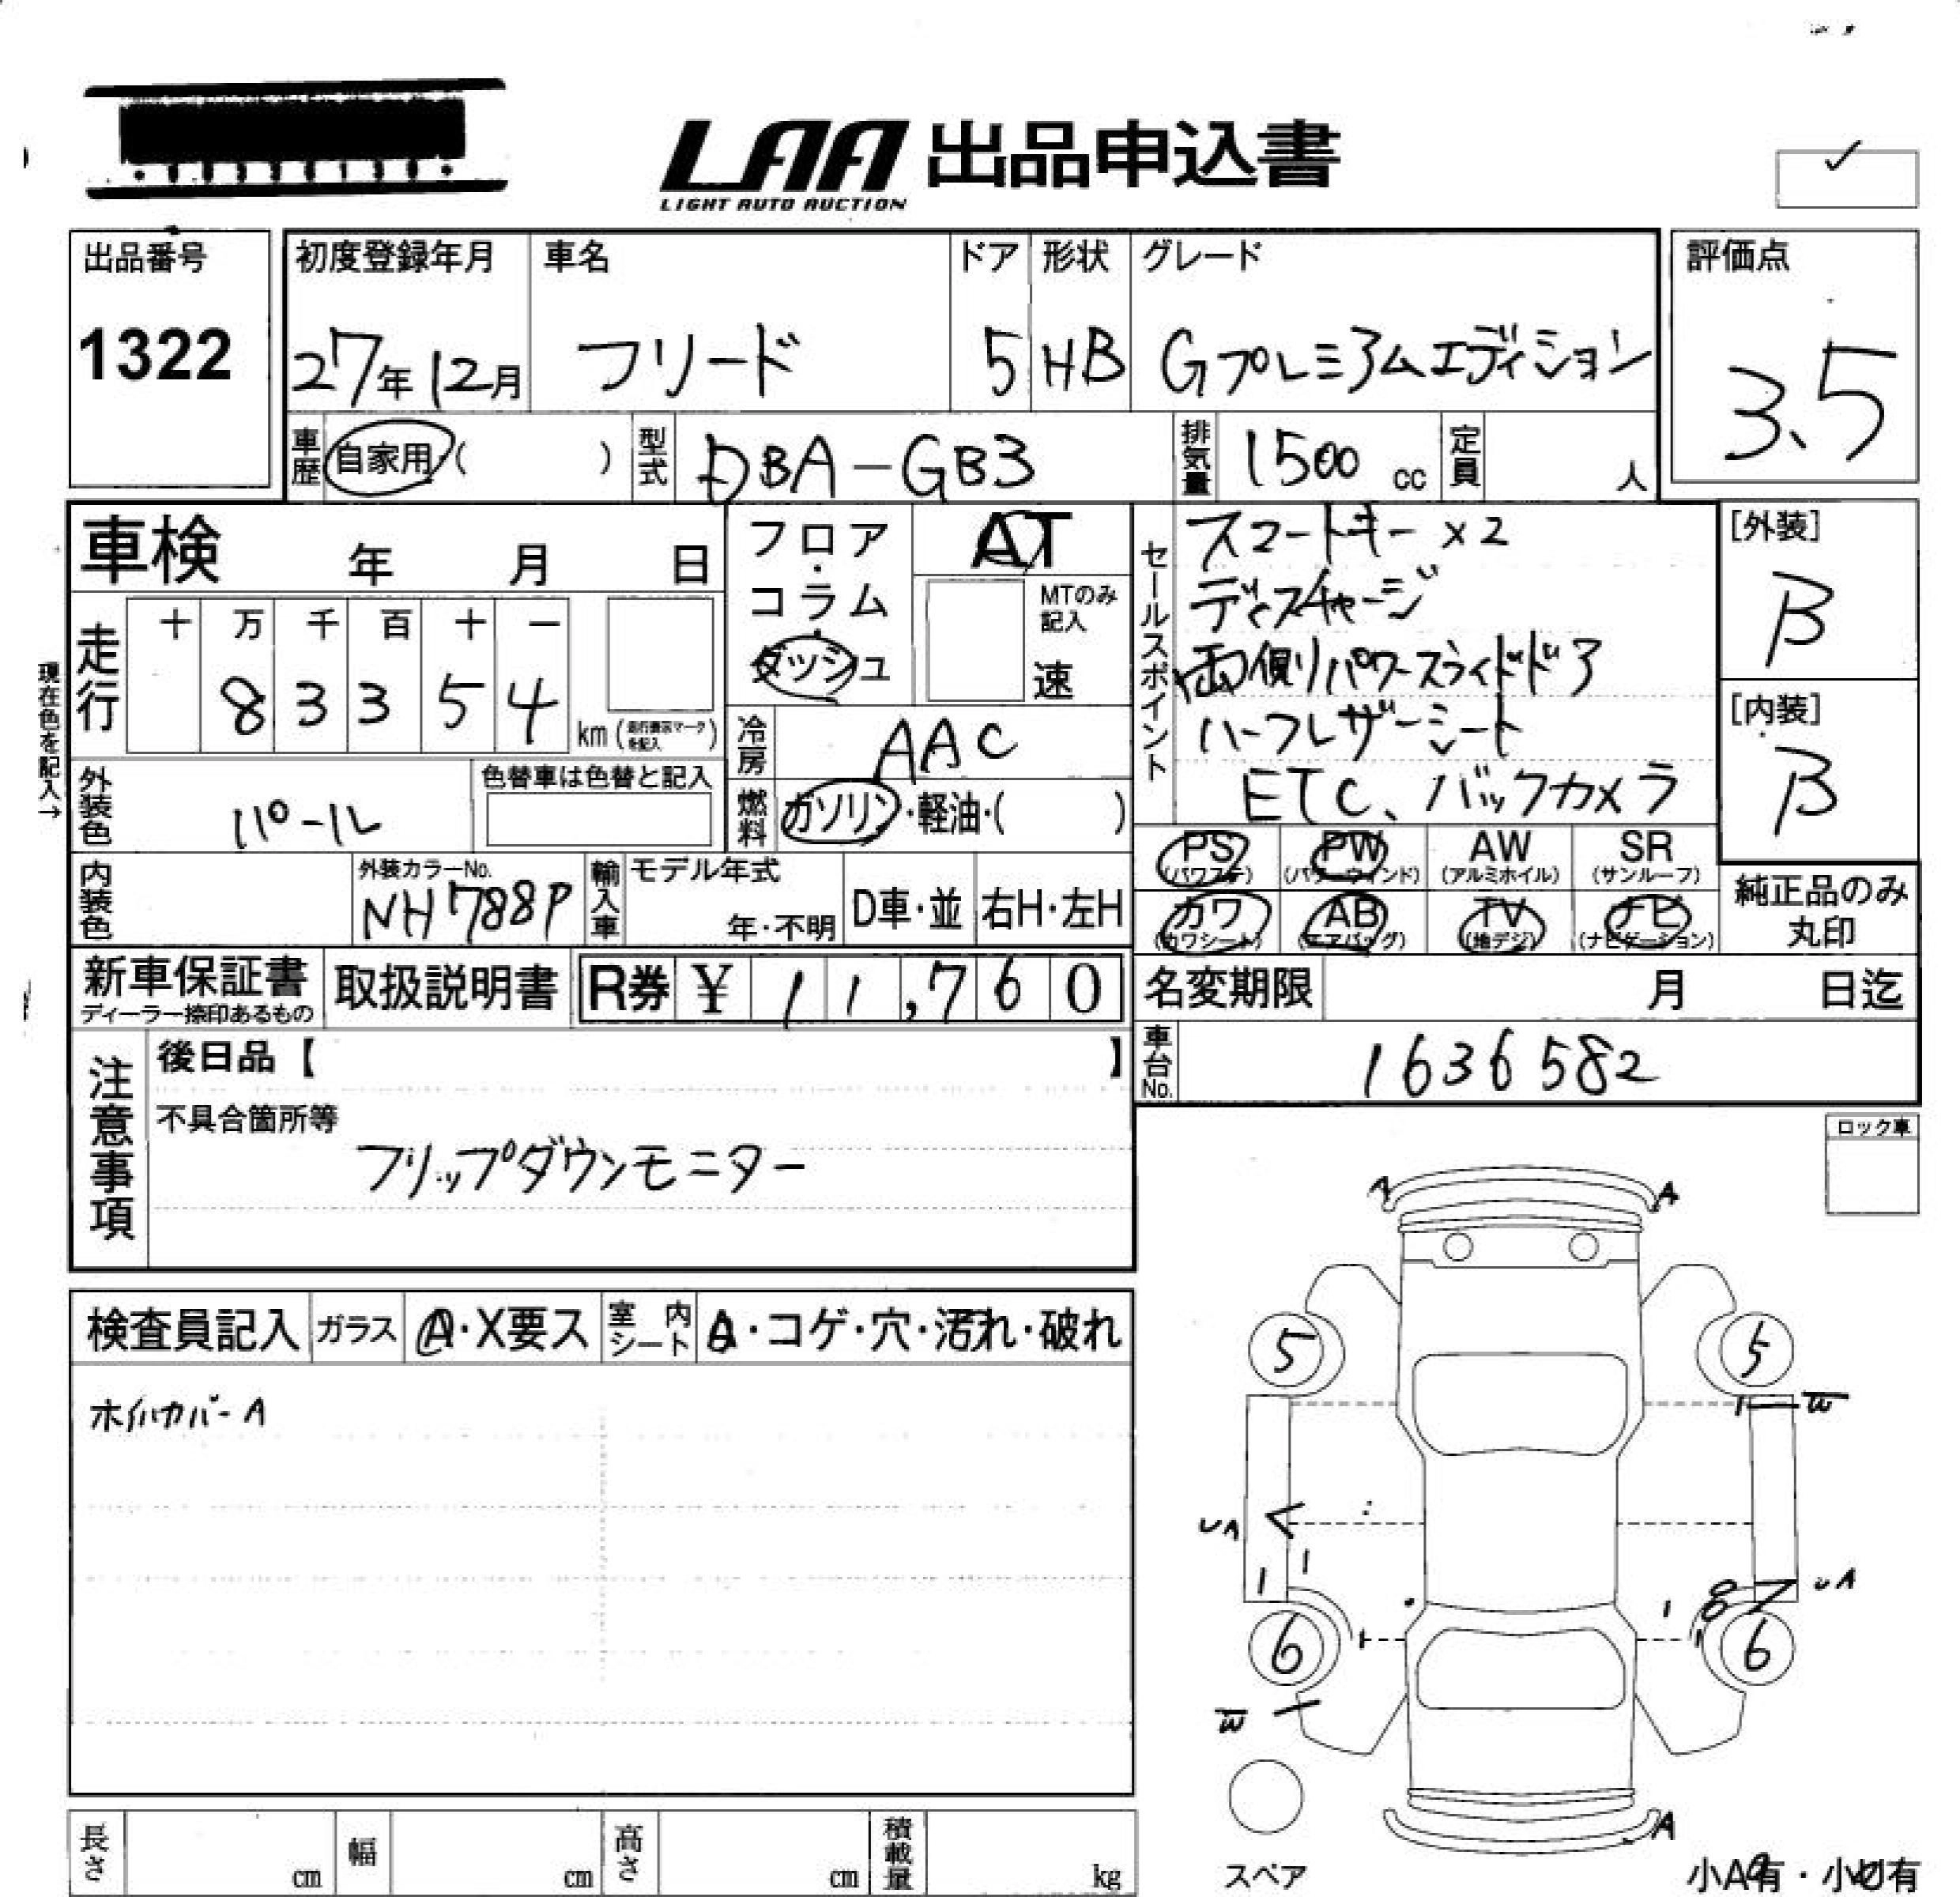 LAA 出品申込書
LIGHT AUTO AUCTION
出品番号
1322
初度登録年月
27年12月
車名
フリード
ドア
5
形状
HB
グレード
Gプレミアムエディション
評価点
3.5
車歴
自家用・( )
型式
DBA-GB3
排気量
1500 cc
定員
人
車検 年 月 日
フロア・コラム・ダッシュ
AT
MTのみ記入
速
走行
十 万 千 百 十 一
8 3 3 5 4
km (走行表示マークを記入)
現在色を記入→
外装色
パール
色替車は色替と記入
冷房
AAC
燃料
ガソリン・軽油・( )
セールスポイント
スマートキー×2
ディスチャージ
両側パワースライドドア
ハーフレザーシート
ETC、バックカメラ
[外装]
B
[内装]
B
内装色
外装カラーNo.
NH788P
輸入車
モデル年式
年・不明
D車・並
右H・左H
PS
(パワステ)
PW
(パワーウィンド)
AW
(アルミホイル)
SR
(サンルーフ)
カワ
(カワシート)
AB
(エアバッグ)
TV
(地デジ)
ナビ
(ナビゲーション)
純正品のみ
丸印
新車保証書
ディーラー捺印あるもの
取扱説明書
R券 ¥ 11,760
名変期限 月 日迄
車台No.
1636582
注意事項
後日品【 】
不具合箇所等
フリップダウンモニター
ロック車
検査員記入
ガラス
A・X要ス
室内シート
A・コゲ・穴・汚れ・破れ
ホイルカバーA
A A
5 5
W
UA
1
1
1
8
UA
6 6
W
A
スペア
小A有・小U有
長さ cm
幅 cm
高さ cm
積載量 kg